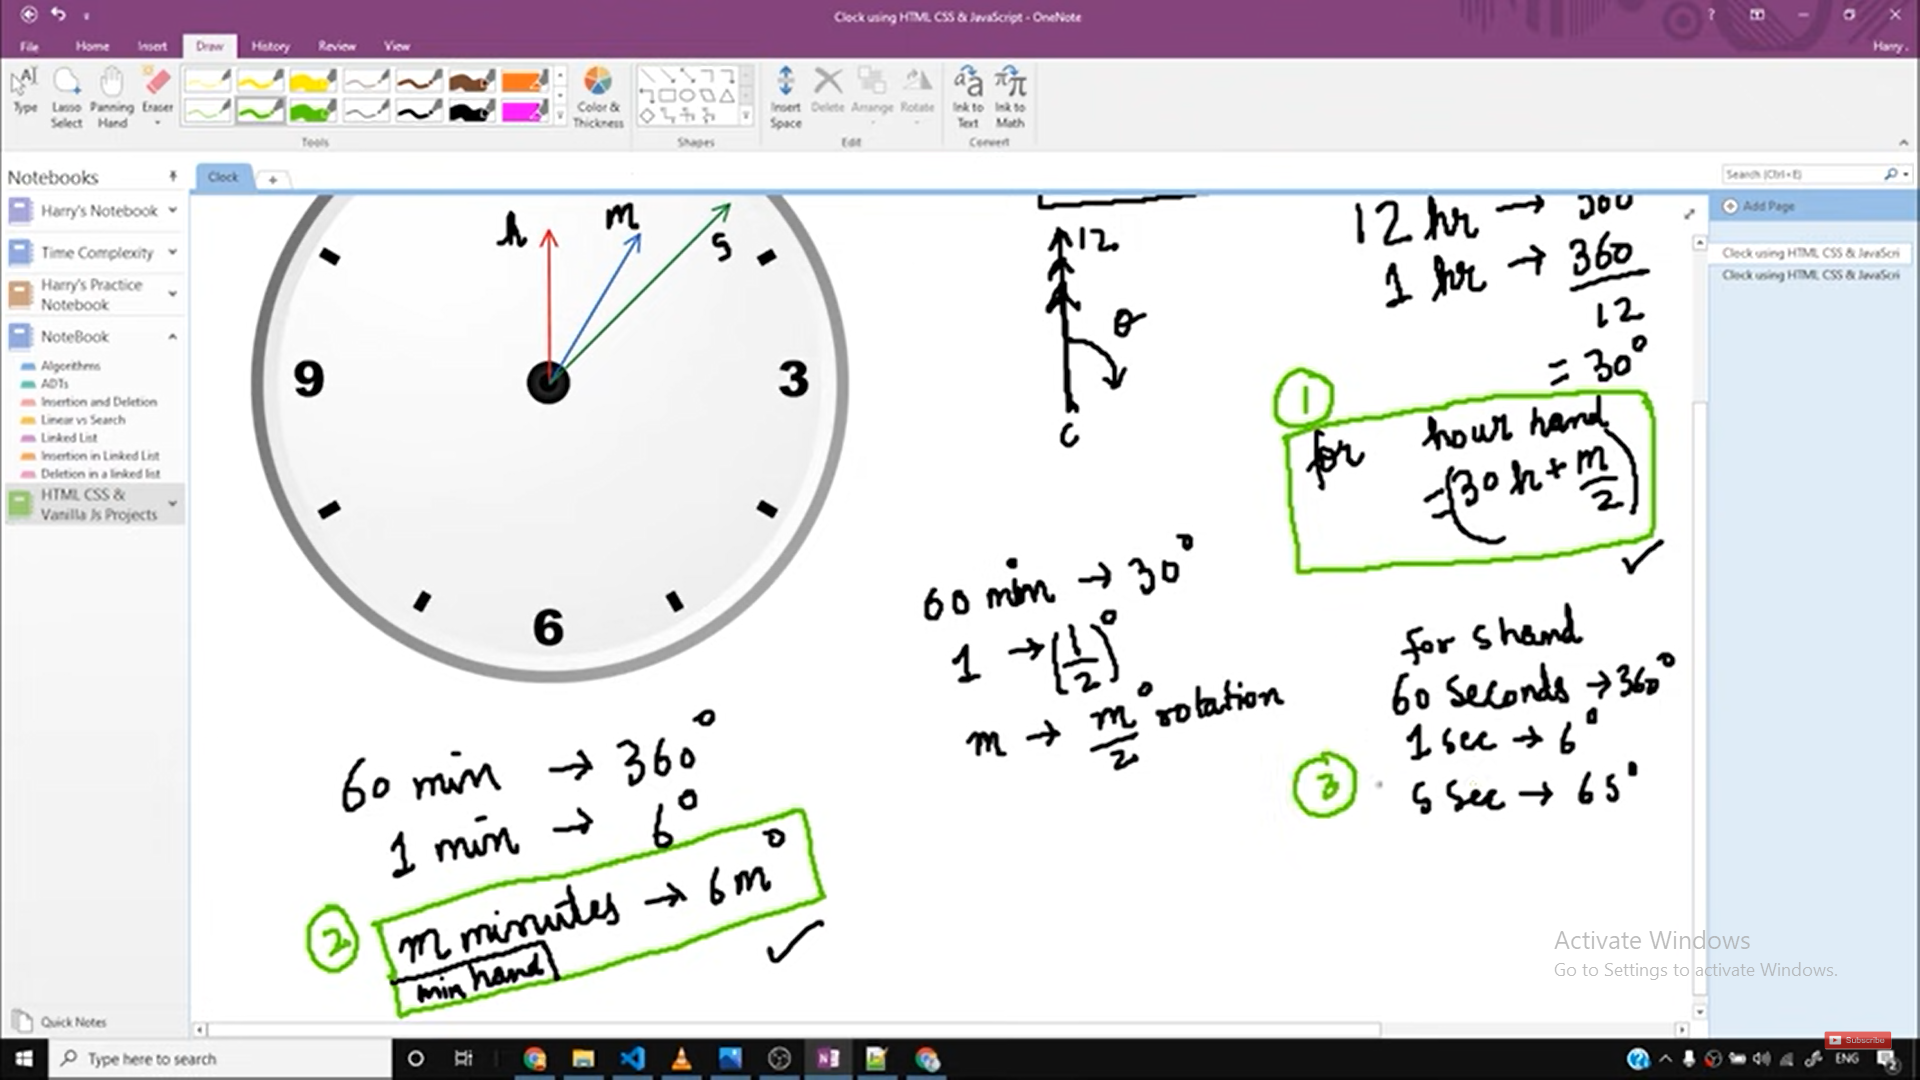 Clock using HTML CSS & JavaScript - OneNote
File Home Insert Draw History Review View
Harry .
Type
Lasso Select
Panning Hand
Eraser
Color & Thickness
Insert Space
Delete
Arrange
Rotate
Ink to Text
Ink to Math
Tools
Shapes
Edit
Convert
Notebooks
Clock
Search (Ctrl+E)
Harry's Notebook
Time Complexity
Harry's Practice
Notebook
NoteBook
Algorithms
ADTs
Insertion and Deletion
Linear vs Search
Linked List
Insertion in Linked List
Deletion in a linked list
HTML CSS &
Vanilla Js Projects
Quick Notes
Add Page
Clock using HTML CSS & JavaScri
Clock using HTML CSS & JavaScri
h m s
9 3
6
12
θ
c
12 hr → 360
1 hr → 360
12
= 30°
1
for hour hand
=(30h + m/2)
60 min → 30°
1 → (1/2)°
m → m/2° rotation
for s hand
60 seconds → 360°
1 sec → 6°
3
s sec → 6s°
60 min → 360°
1 min → 6°
2
m minutes → 6m°
min hand
Activate Windows
Go to Settings to activate Windows.
Subscribe
Type here to search
ENG
2